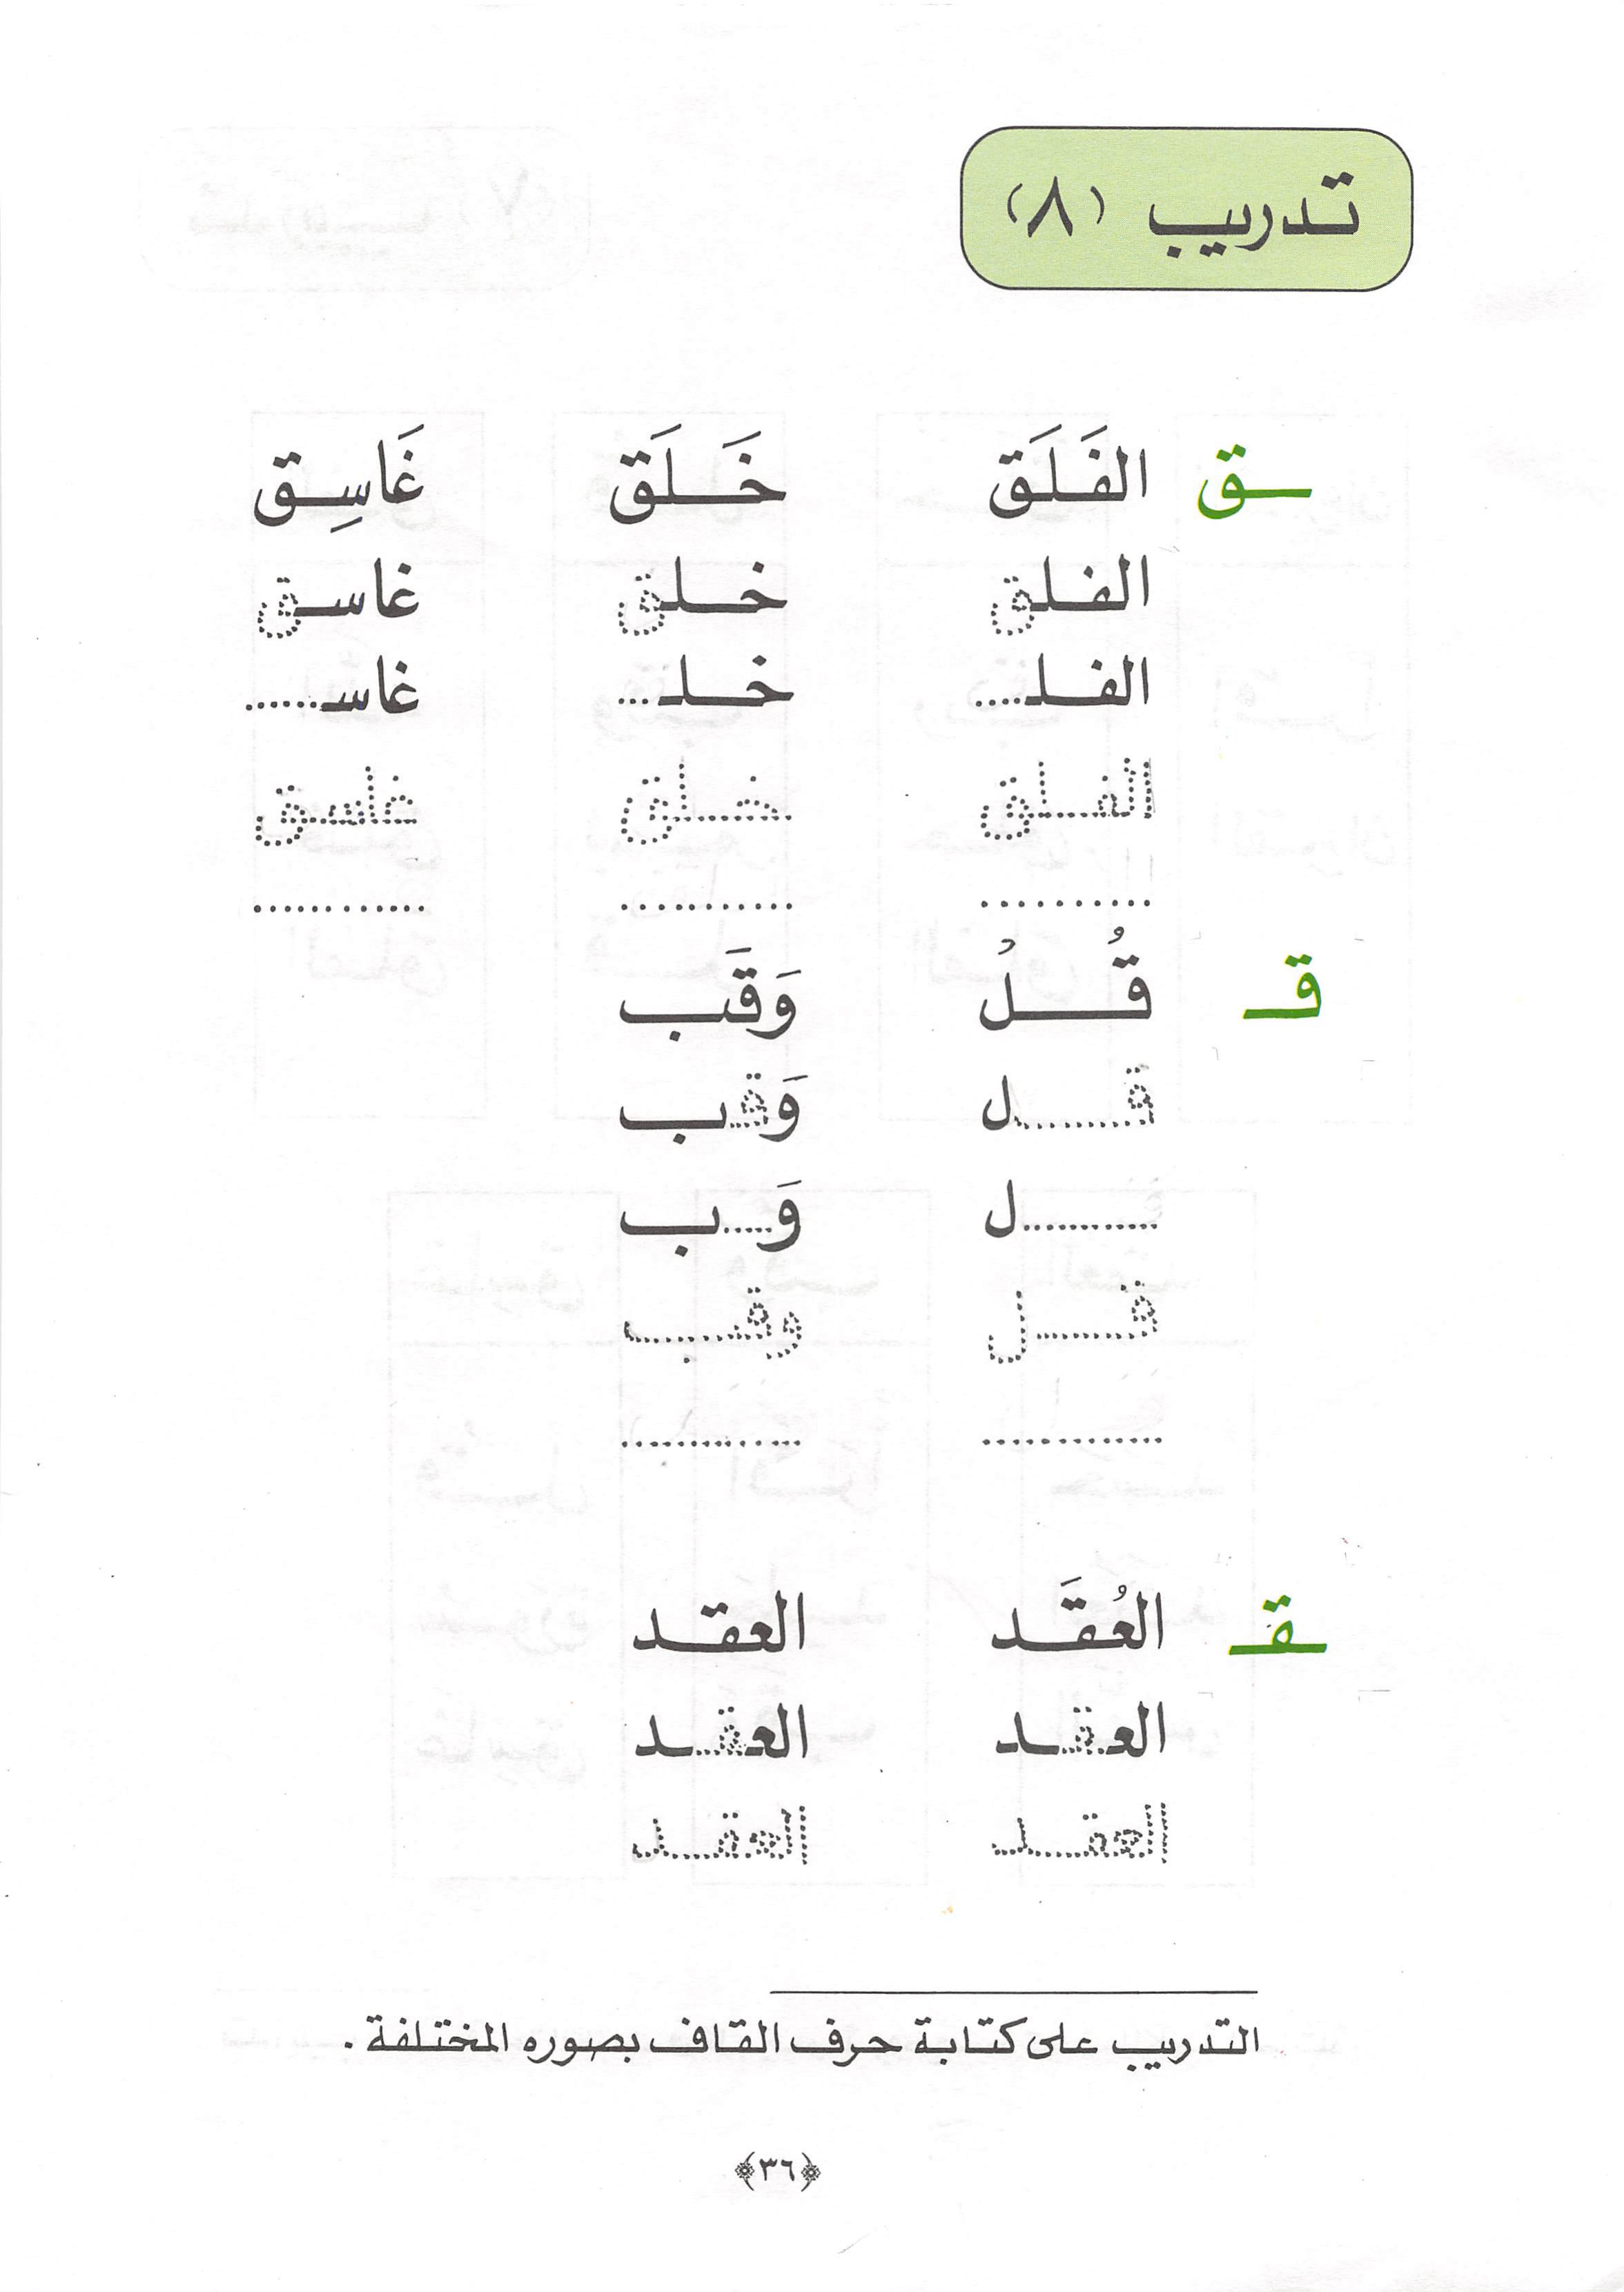 تدريب (٨)
ـق الفَلَق خَلَق غَاسِق
الفلق خلق غاسق
الفلـ.... خلـ... غاسـ......
الفلق خلق غاسق
.......... ............ ............
قـ قُلُ وَقَب
قل وَقب
............ل وَ.....ب
قل وقب
............. .............
ـقـ العُقَد العقد
العقد العقد
العقد العقد
التدريب على كتابة حرف القاف بصوره المختلفة .
﴿٣٦﴾